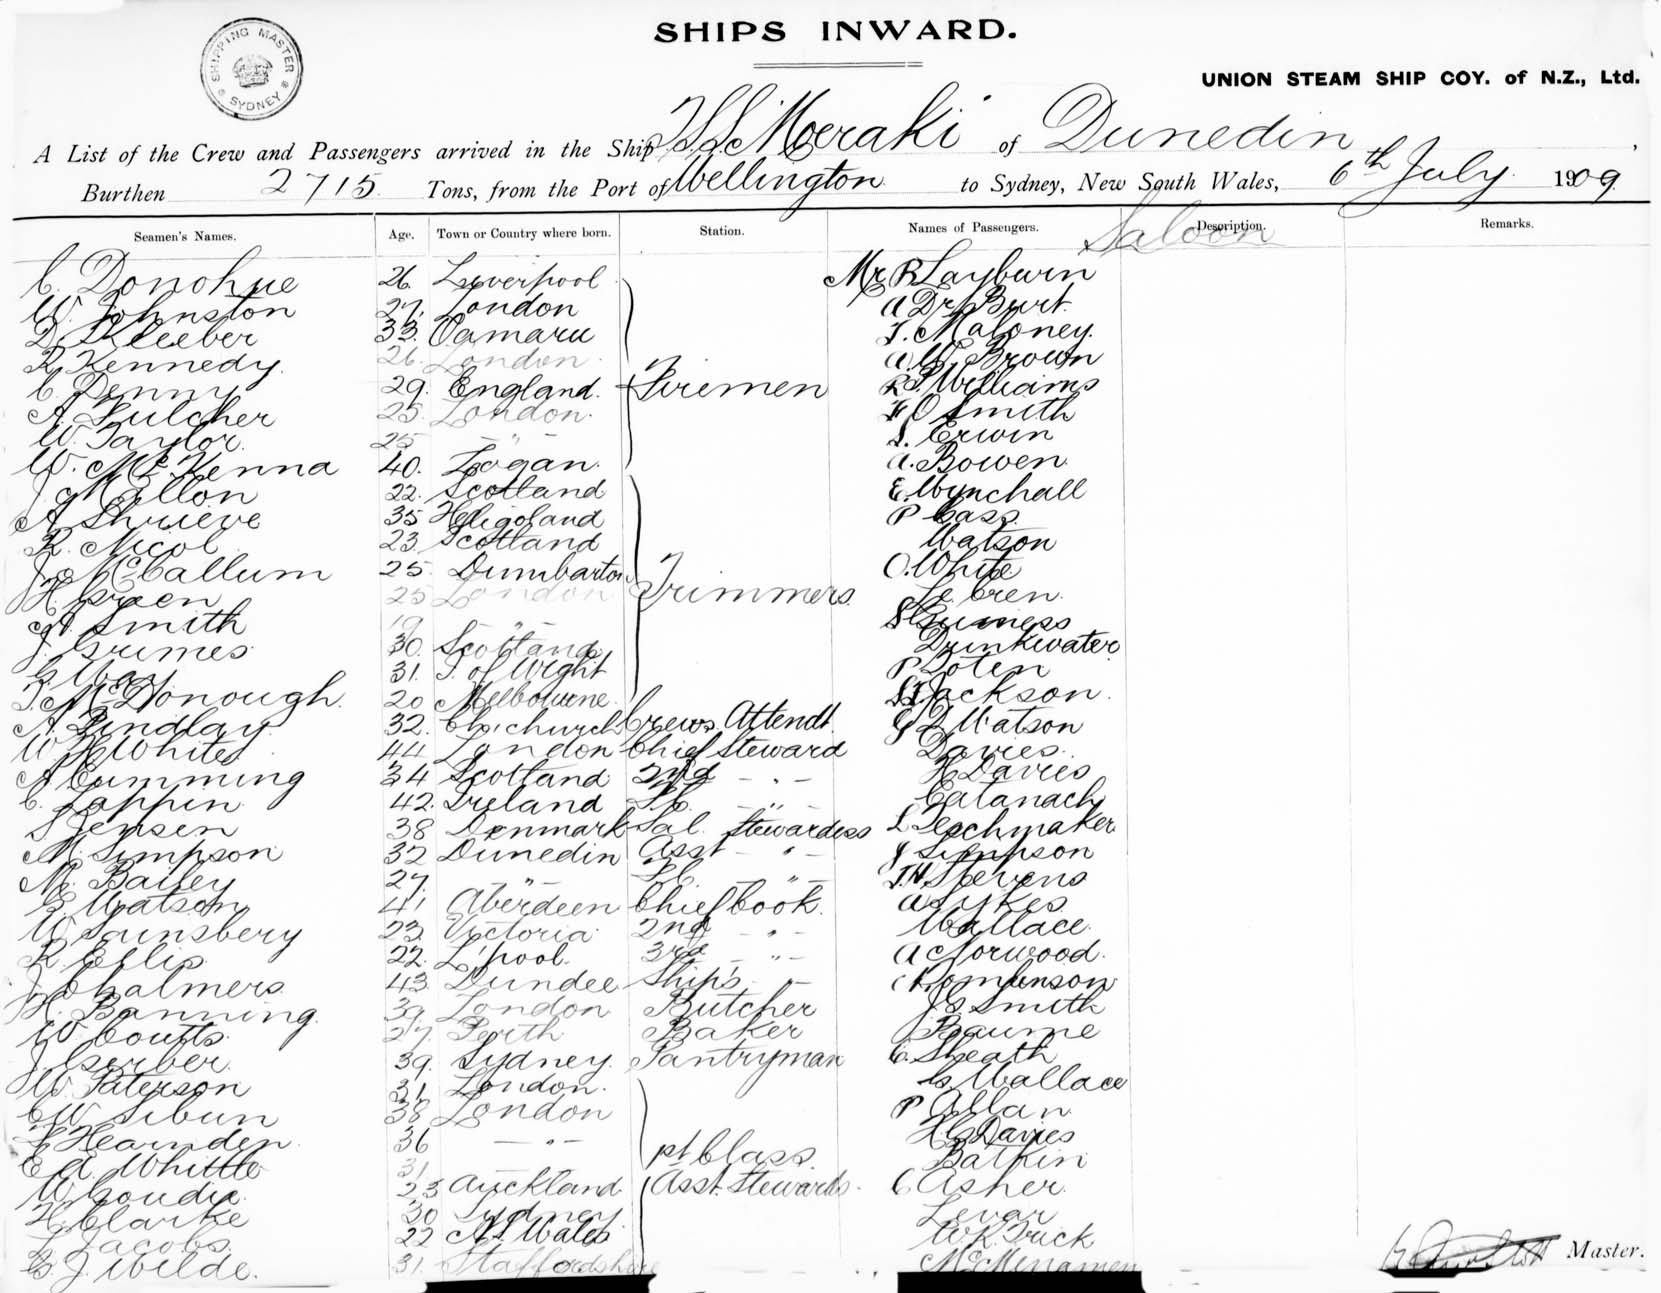 SHIPS INWARD.
SHIPPING MASTER SYDNEY
UNION STEAM SHIP COY. of N.Z., Ltd.
A List of the Crew and Passengers arrived in the Ship Moeraki of Dunedin,
Burthen 2715 Tons, from the Port of Wellington to Sydney, New South Wales, 6th July 1909
Seamen's Names. Age. Town or Country where born. Station. Names of Passengers. Saloon Description. Remarks.
C. Donohue 26 Liverpool Mr R Layburn
W. Johnston 27. London A Dr Burt.
D. Kleeber 33. Oamaru T. Maloney.
R Kennedy. 26. London. A. G. Brown
C. Denny 29. England. Firemen R Williams
A Fulcher 25. London. F O Smith
W. Taylor. 25 — " — S. Erwin
W. McKenna 40. Logan. A. Bowen.
J. Mallon 22. Scotland E. Wynchall
A Shrieve 35 Heligoland P Cass.
R. Nicol 23. Scotland Watson
J. McCallum 25. Dumbarton Trimmers O. White
H Green 25 London Le Cren.
A. Smith 19 " S Guiness
J. Grimes 30. Scotland Drinkwater
G. Way 31. I. of Wight P Toten
T. McDonough. 20 Melbourne. Jackson.
A Findlay. 32. Ch.church Crews Attendt. Watson
W. H Whites 44. London Chief Steward Davies.
A Cumming 34 Scotland 2nd — " — H Davies
C. Lappin 42. Ireland — " — Catanach
S Jensen 38 Denmark Sal. Stewardess L Teschmaker
M. Simpson 32 Dunedin Asst — " — J Simpson
M. Bailey 27. — " — — " — Stevens
G Watson 41 Aberdeen Chief Cook. A Sykes
W Sainsbery 23. Victoria 2nd — " — Wallace.
R Ellis. 22. L'pool. 3rd — " — A C Norwood.
J Chalmers. 43 Dundee Ship's " Tomlinson
H. Banning. 39 London Butcher J. S. Smith
W Coutts. 27. Perth Baker Beaume
J Gerber. 39. Sydney. Pantryman C. Sheath
W. Paterson 31 London. G. Wallace
C W Sibun 38 London P Allan
F Hearnden. 36 — " — H C Davies
E A. Whittle 31. 1st Class. Batkin
W Goudie. 23 Auckland Asst. Stewards. C Asher.
H. Clarke 30 Sydney Levar
L Jacobs. 22 N.S. Wales W. R. Trick
C. J. Wilde. 31. Staffordshire McMenamen
Master.